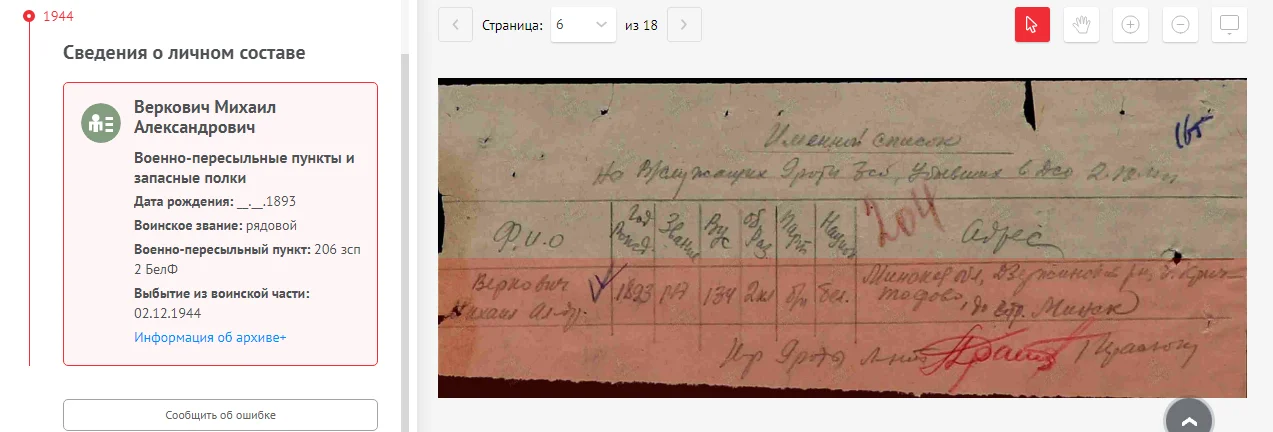 1944
Сведения о личном составе
Веркович Михаил
Александрович
Военно-пересыльные пункты и
запасные полки
Дата рождения: __.__.1893
Воинское звание: рядовой
Военно-пересыльный пункт: 206 зсп
2 БелФ
Выбытие из воинской части:
02.12.1944
Информация об архиве+
Сообщить об ошибке
Страница: 6 из 18
165
Именной список
На В/служащих 9 роты 3 сб, убывших в
204
Ф.И.О Год рожд. Звание Вус об раз Парт Национ Адрес
Веркович 1893 134 2 кл бп бел. Минская обл, Дзержинский
Михаил Минск
9 роты